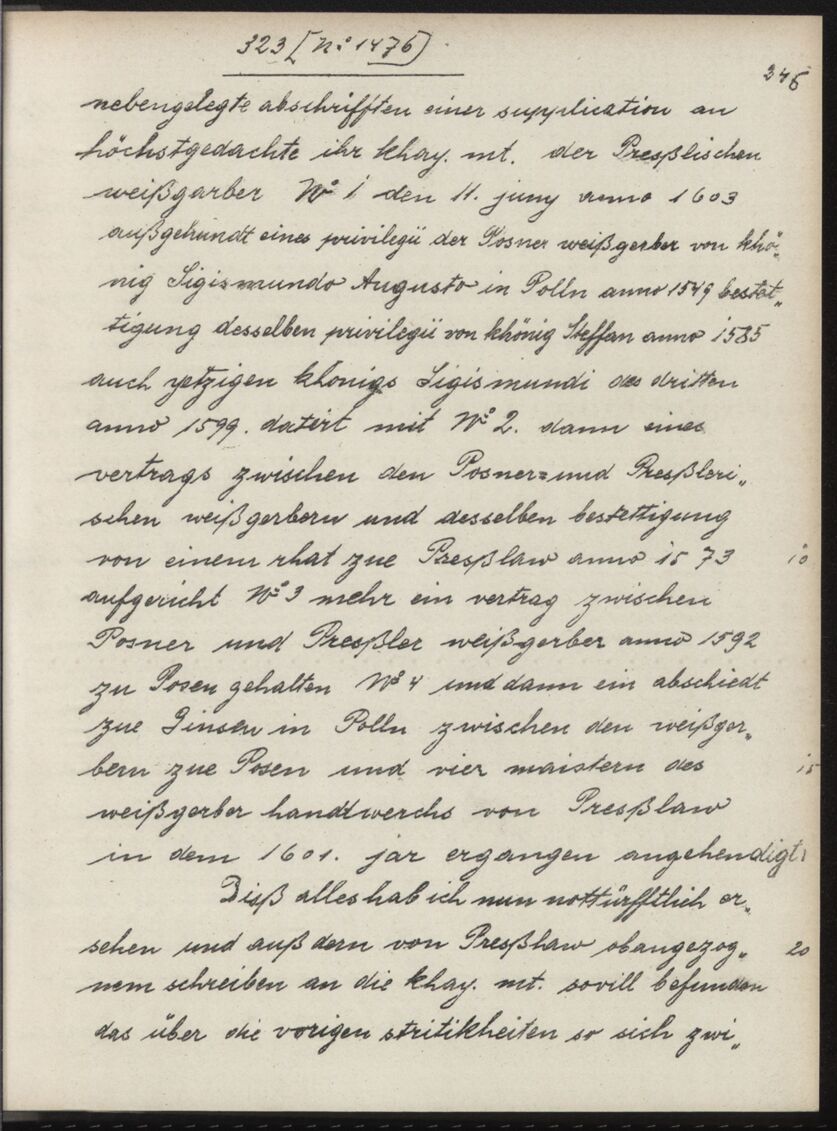 323 [N.° 1476]
345
nebengelegte abschrifften einer supplication an
höchstgedachte ihr khay. mt. der Presßlischen
weißgarber N° 1 den 11. juny anno 1603
außgehundt eines privilegii der Posner weißgerber von khö„
nig Sigismundo Augusto in Polln anno 1549 bestet„
tigung desselben privilegii von khönig Steffan anno 1585
auch yetzigen khonigs Sigismundi des dritten
anno 1599. datirt mit N° 2. dann eines
vertrags zwischen den Posner= und Presßleri„
schen weißgerbern und desselben bestettigung
von einem rhat zue Presßlaw anno 1573 10
aufgericht N° 3 mehr ein vertrag zwischen
Posner und Presßler weißgerber anno 1592
zu Posen gehalten N° 4 und dann ein abschiedt
zue Ginsen in Polln zwischen den weißger„
bern zue Posen und vier maistern des 15
weißgerber handtwerchs von Presßlaw
in dem 1601. jar ergangen angehendigt.
Diß alles hab ich nun nottürfftlich er„
sehen und auß dem von Presßlaw obangezog„ 20
nem schreiben an die khay. mt. sovill befunden
das über die vorigen stritikheiten so sich zwi„